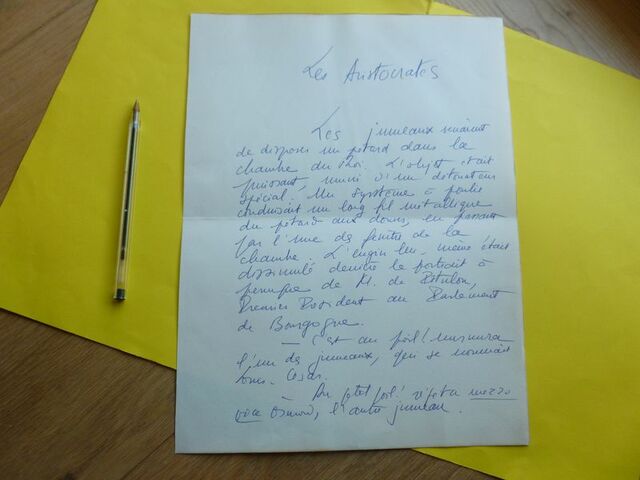 Les Aristocrates
Les jumeaux venaient
de disposer un pétard dans la
chambre du Roi. L'objet était
puissant, muni d'un détonateur
spécial. Un système à poulie
conduisant un long fil métallique
du pétard aux douves, en passant
par l'une des fenêtres de la
chambre. L'engin lui-même était
dissimulé derrière le portrait à
perruque de M. de
Premier Président au Parlement
de Bourgogne.
— C'est au poil ! murmura
l'un des jumeaux, qui se nommait
Louis-César.
— Au petit poil ! rejeta mezzo
voce Osmond, l'autre jumeau.